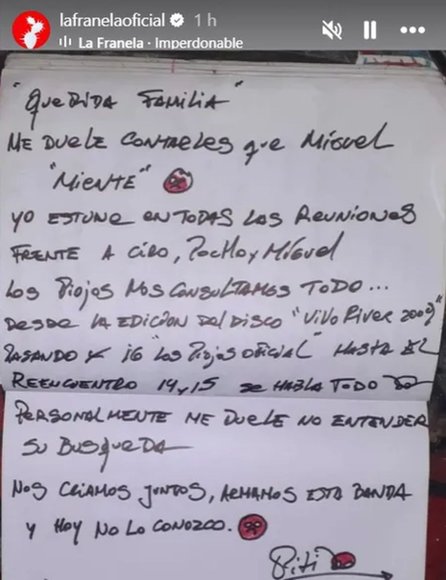 lafranelaoficial 1 h
La Franela · Imperdonable
"QUERIDA FAMILIA"
ME DUELE CONTARLES QUE MIGUEL
"MIENTE"
YO ESTUVE EN TODAS LAS REUNIONES
FRENTE A CIRO, POCHO y MIGUEL
LOS PIOJOS NOS CONSULTAMOS TODO...
DESDE LA EDICION DEL DISCO "VIVO RIVER 2009"
PASANDO X IG "LOS PIOJOS OFICIAL" HASTA EL
REENCUENTRO 14 y 15 SE HABLA TODO
PERSONALMENTE ME DUELE NO ENTENDER
SU BUSQUEDA
NOS CRIAMOS JUNTOS, ARMAMOS ESTA BANDA
Y HOY NO LO CONOZCO.
Piti